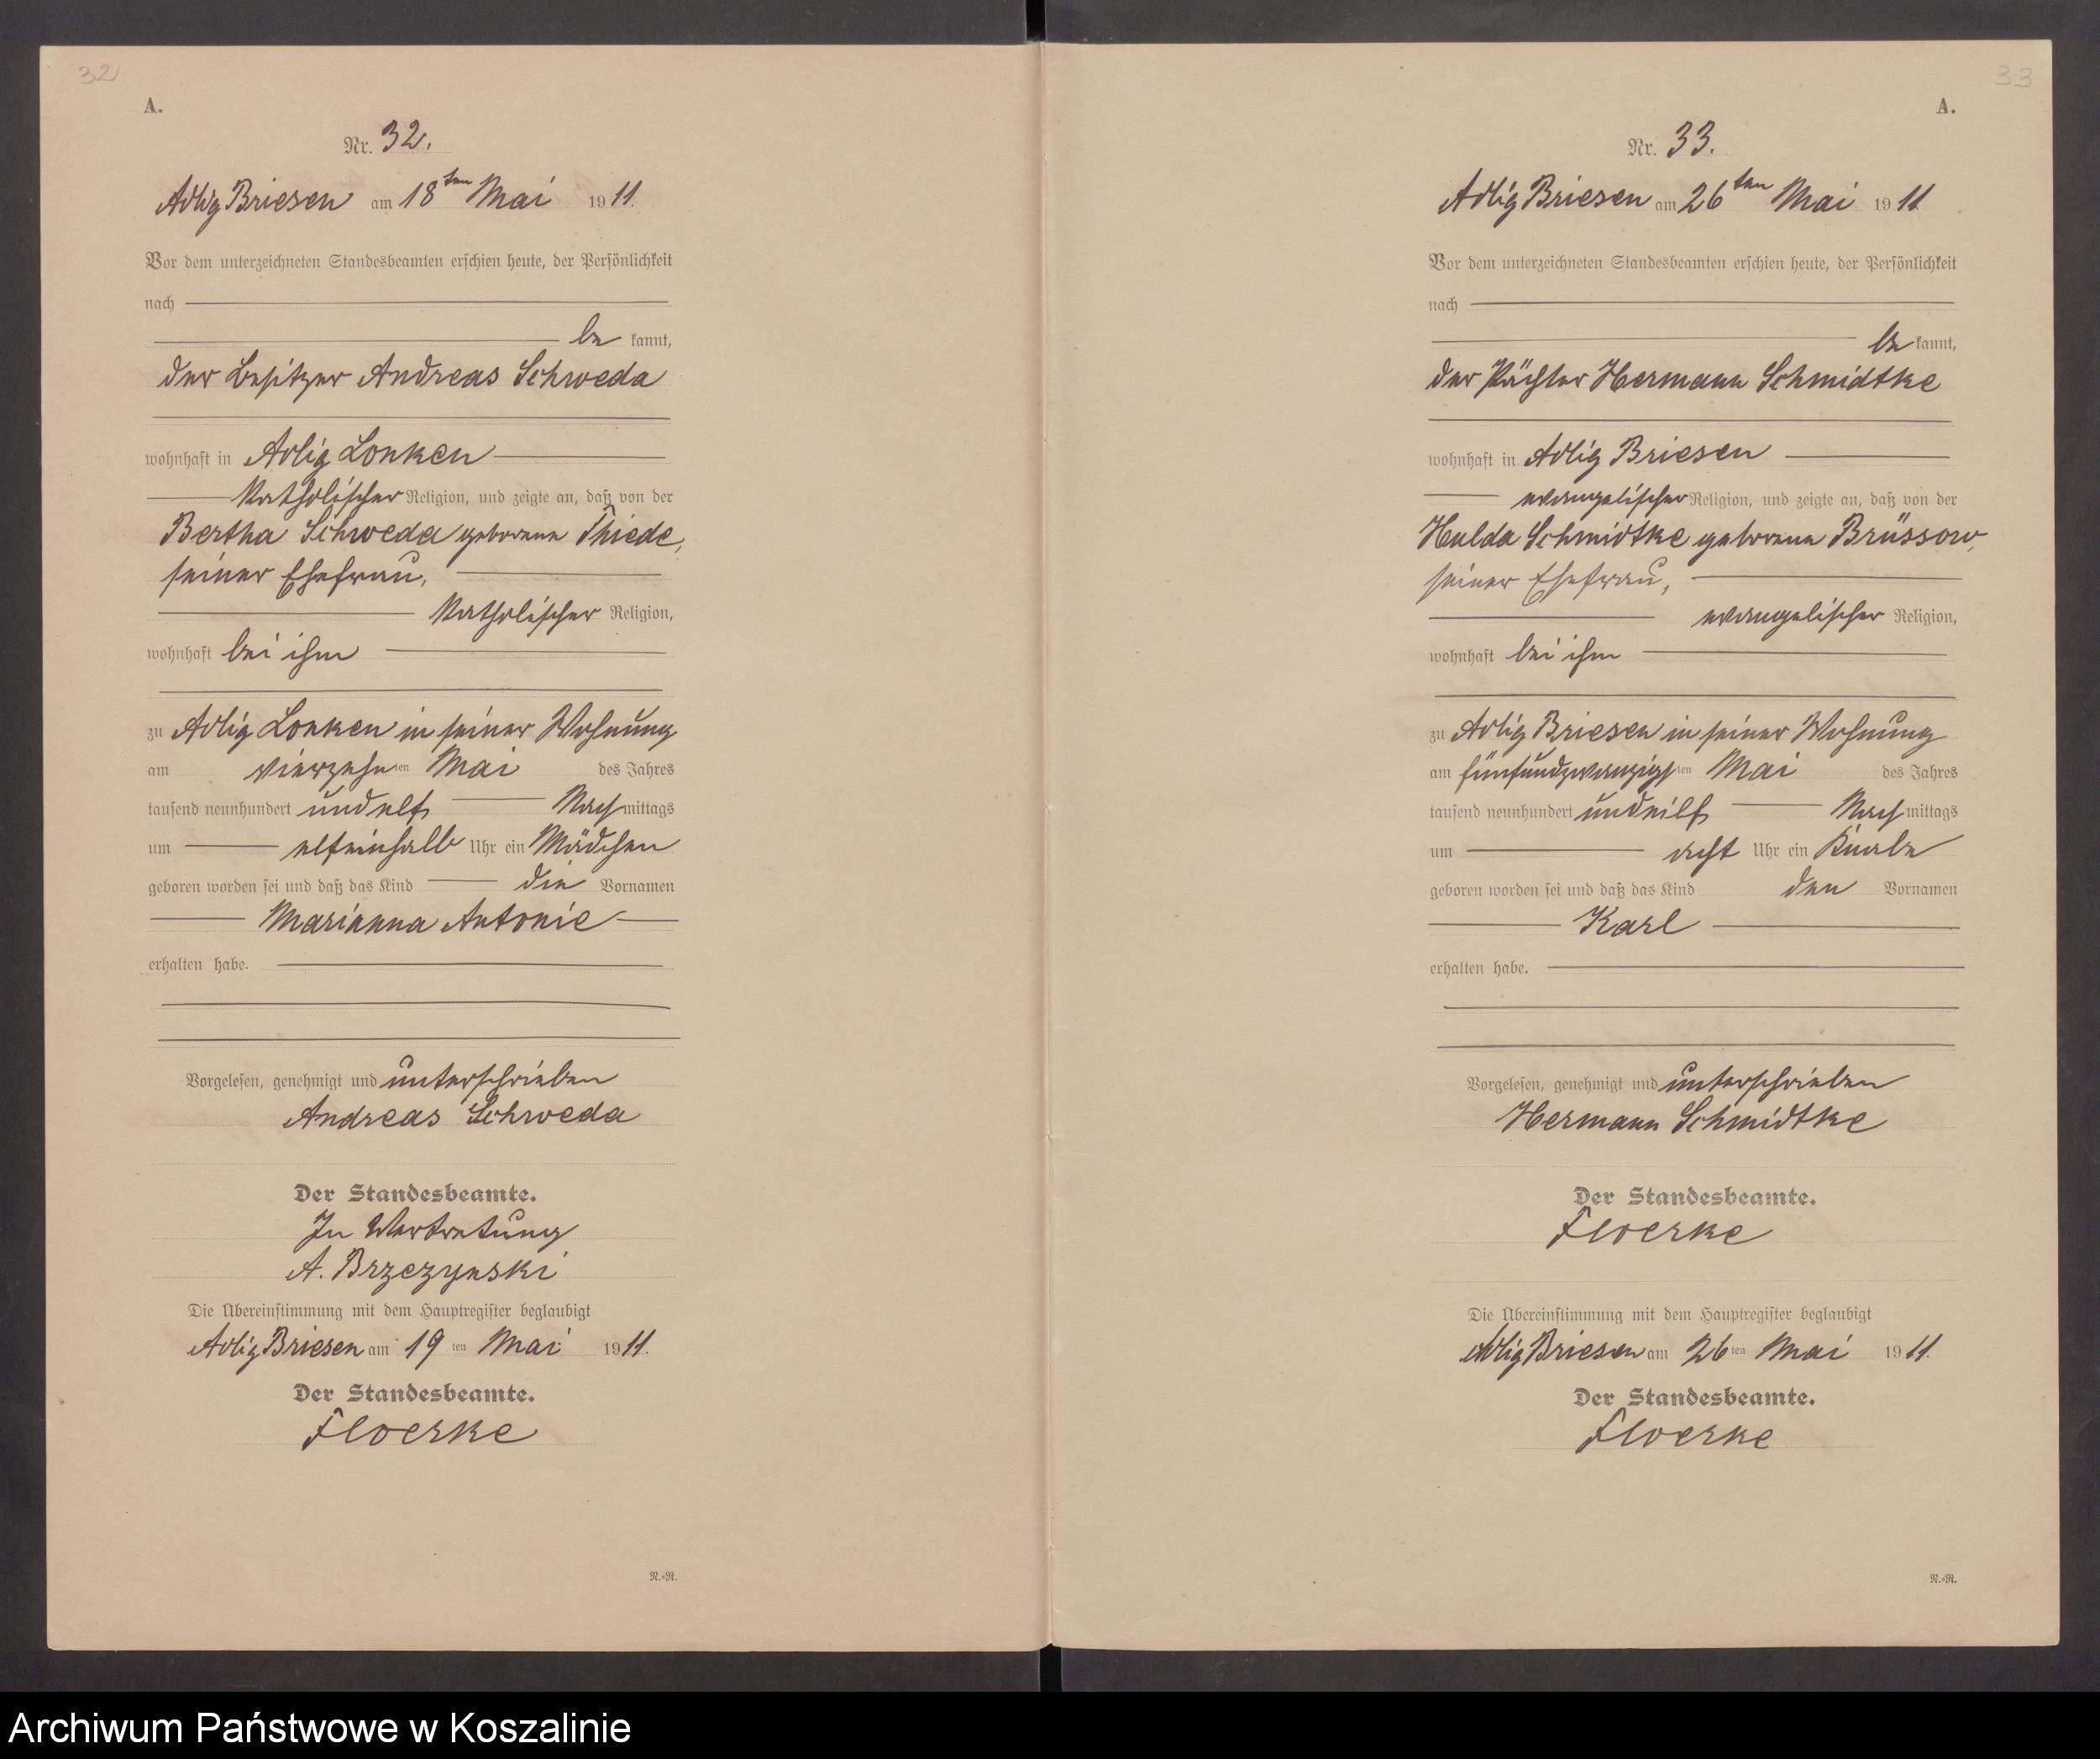 32
A.
Nr. 32.
Adlig Briesen am 18ten Mai 1911.
Vor dem unterzeichneten Standesbeamten erschien heute, der Persönlichkeit
nach
be kannt,
der Besitzer Andreas Schweda
wohnhaft in Adlig Lonken
katholischer Religion, und zeigte an, daß von der
Bertha Schweda geborene Thiede,
seiner Ehefrau,
katholischer Religion,
wohnhaft bei ihm
zu Adlig Lonken in seiner Wohnung
am vierzehnten Mai des Jahres
tausend neunhundert und elf Nachmittags
um elfeinhalb Uhr ein Mädchen
geboren worden sei und daß das Kind die Vornamen
Marianna Antonie
erhalten habe.
Vorgelesen, genehmigt und unterschrieben
Andreas Schweda
Der Standesbeamte.
In Vertretung
A. Brzezynski
Die Übereinstimmung mit dem Hauptregister beglaubigt
Adlig Briesen am 19ten Mai 1911.
Der Standesbeamte.
Floerke
N.=R.
33
A.
Nr. 33.
Adlig Briesen am 26ten Mai 1911
Vor dem unterzeichneten Standesbeamten erschien heute, der Persönlichkeit
nach
be kannt,
der Pächter Hermann Schmidtke
wohnhaft in Adlig Briesen
evangelischer Religion, und zeigte an, daß von der
Hulda Schmidtke geborene Brüssow,
seiner Ehefrau,
evangelischer Religion,
wohnhaft bei ihm
zu Adlig Briesen in seiner Wohnung
am fünfundzwanzigsten Mai des Jahres
tausend neunhundert und eilf Nachmittags
um acht Uhr ein Knabe
geboren worden sei und daß das Kind den Vornamen
Karl
erhalten habe.
Vorgelesen, genehmigt und unterschrieben
Hermann Schmidtke
Der Standesbeamte.
Floerke
Die Übereinstimmung mit dem Hauptregister beglaubigt
Adlig Briesen am 26ten Mai 1911.
Der Standesbeamte.
Floerke
N.=R.
Archiwum Państwowe w Koszalinie